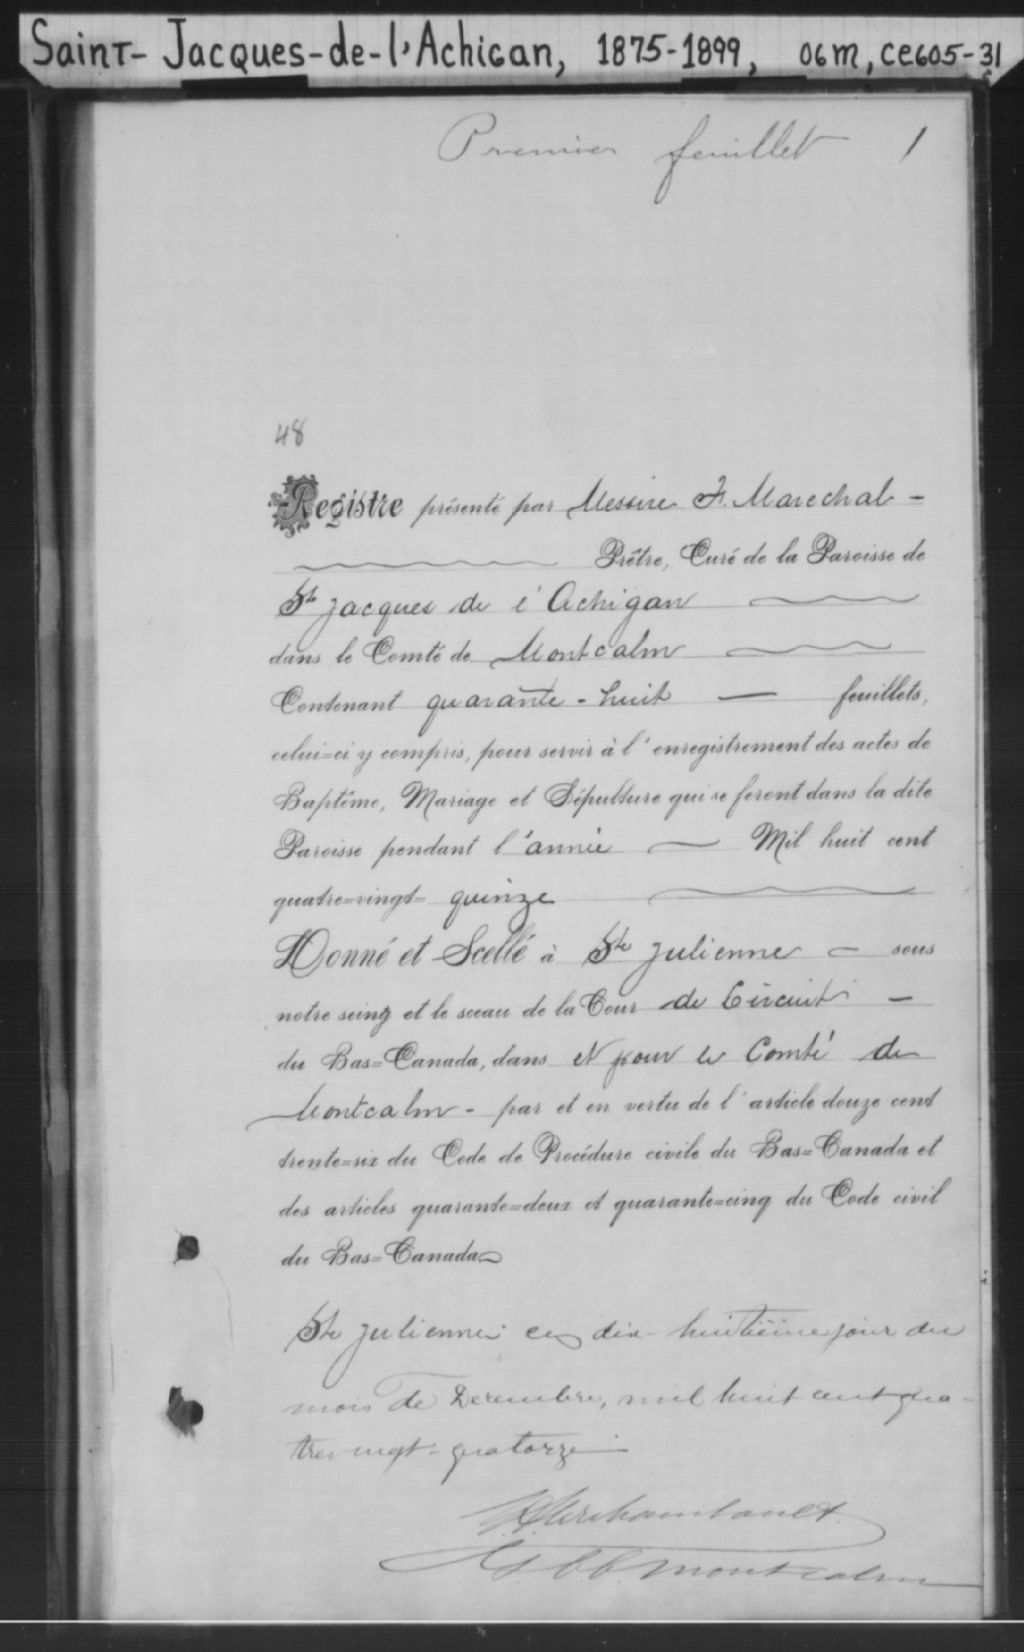 Saint-Jacques-de-l'Achigan, 1875-1899, 06M, CE605-31
Premier feuillet 1
48
Registre présenté par Messire F. Marechal -
Prêtre, Curé de la Paroisse de
St Jacques de l'Achigan
dans le Comté de Montcalm
Contenant quarante-huit — feuillets,
celui=ci y compris, pour servir à l'enregistrement des actes de
Baptême, Mariage et Sépulture qui se feront dans la dite
Paroisse pendant l'année — Mil huit cent
quatre=vingt= quinze
Donné et Scellé à Ste Julienne - sous
notre seing et le sceau de la Cour de Circuit -
du Bas=Canada, dans et pour le Comté de
Montcalm - par et en vertu de l'article douze cent
trente=six du Code de Procédure civile du Bas=Canada et
des articles quarante=deux et quarante=cinq du Code civil
du Bas=Canada
Ste Julienne ce dix-huitième jour du
mois de Decembre, mil huit cent qua-
tre vingt-quatorze
Archambault
C. C. Montcalm